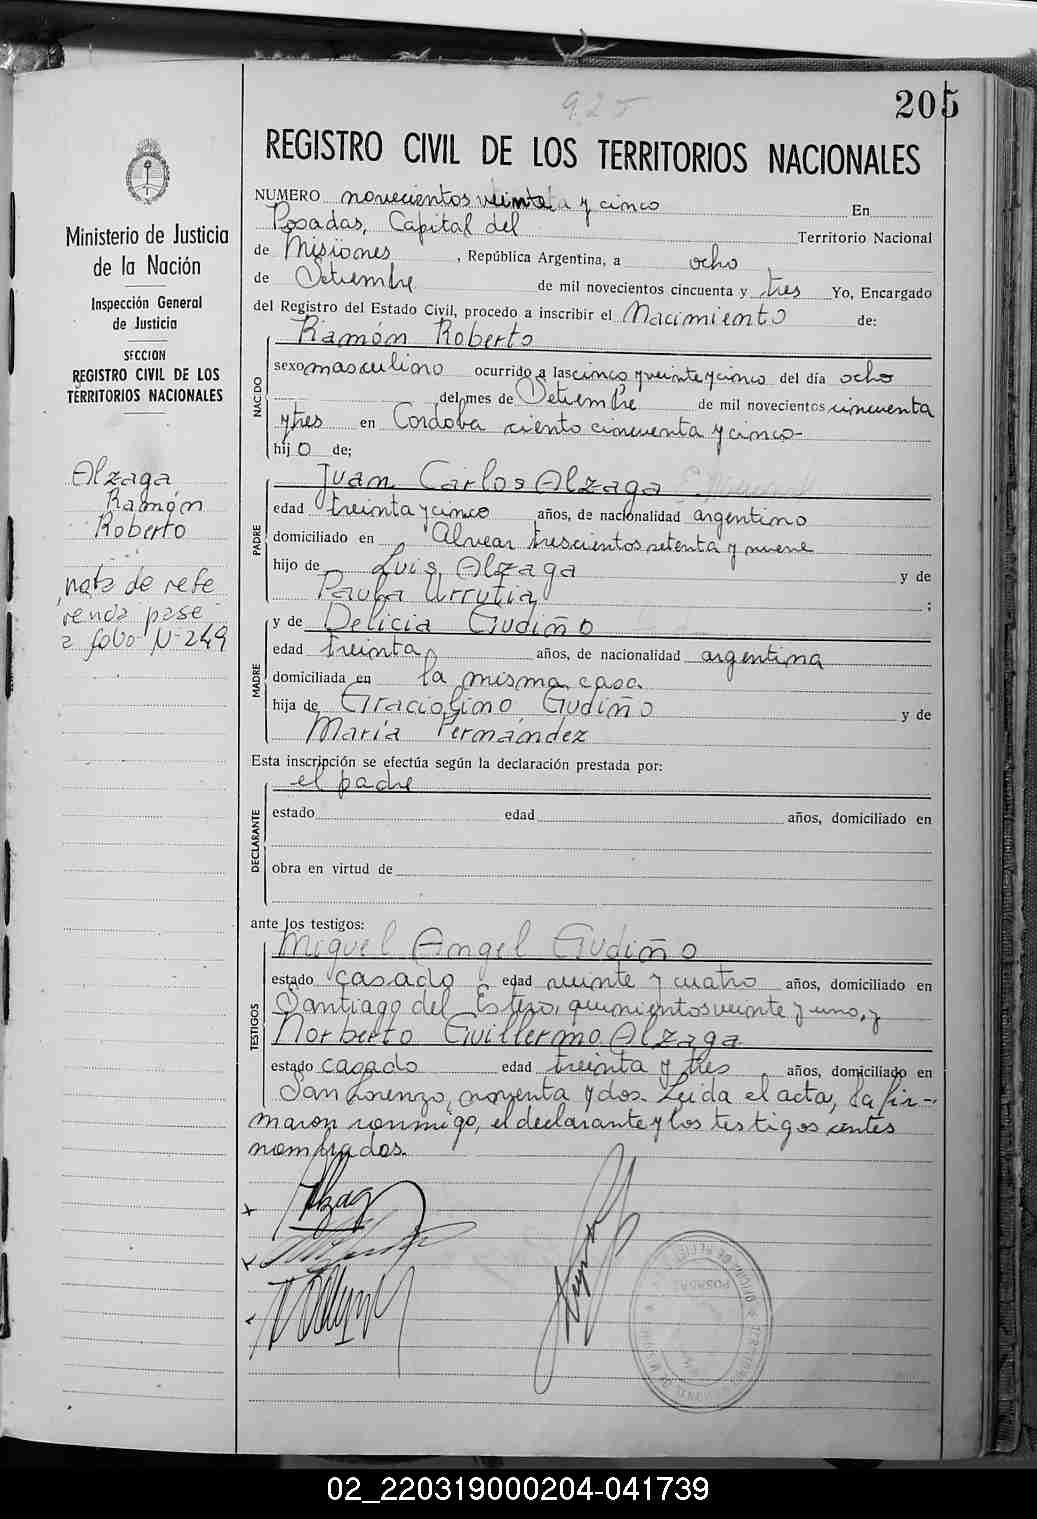 925
205
REGISTRO CIVIL DE LOS TERRITORIOS NACIONALES
Ministerio de Justicia
de la Nación
Inspección General
de Justicia
SECCION
REGISTRO CIVIL DE LOS
TERRITORIOS NACIONALES
Alzaga
Ramón
Roberto
nota de refe
rencia pase
a folio Nº 249
NUMERO novecientos veinte y cinco En
Posadas, Capital del Territorio Nacional
de Misiones, República Argentina, a ocho
de Setiembre de mil novecientos cincuenta y tres Yo, Encargado
del Registro del Estado Civil, procedo a inscribir el Nacimiento de:
Ramón Roberto
NACIDO
sexo masculino ocurrido a las cinco y veinte y cinco del día ocho
del mes de Setiembre de mil novecientos cincuenta
y tres en Córdoba ciento cincuenta y cinco-
hijo de;
Juan Carlos Alzaga
PADRE
edad treinta y cinco años, de nacionalidad argentino
domiciliado en Alvear trescientos setenta y nueve
hijo de Luis Alzaga y de
Paula Urrutia;
MADRE
y de Delicia Gudiño
edad treinta años, de nacionalidad argentina
domiciliada en la misma casa
hija de Graciolimo Gudiño y de
María Fernández
Esta inscripción se efectúa según la declaración prestada por:
el padre
DECLARANTE
estado edad años, domiciliado en
obra en virtud de
ante los testigos:
Miguel Angel Gudiño
TESTIGOS
estado casado edad veinte y cuatro años, domiciliado en
Santiago del Estero, quinientos veinte y uno, y
Norberto Guillermo Alzaga
estado casado edad treinta y tres años, domiciliado en
San Lorenzo, noventa y dos. Leida el acta, la fir-
maron conmigo, el declarante y los testigos antes
nombrados.
Alzaga
POSADAS
02_220319000204-041739